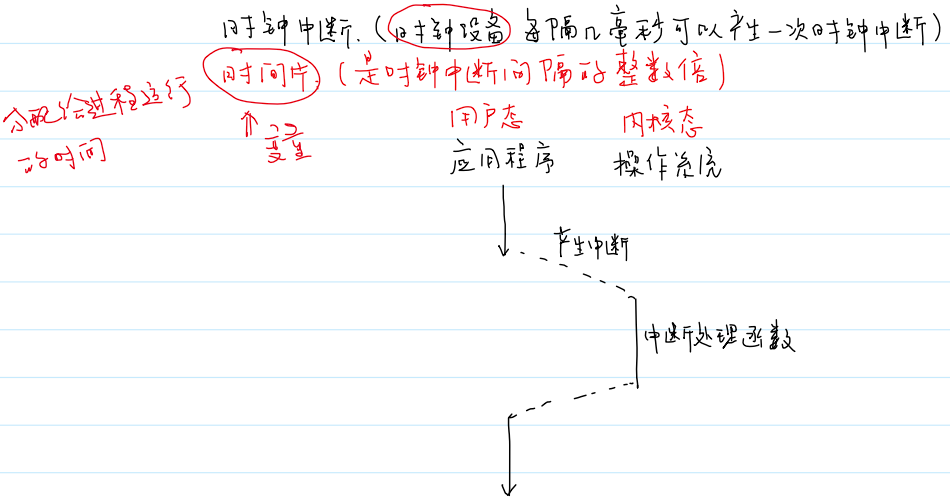 时钟中断.(时钟设备每隔几毫秒可以产生一次时钟中断)
时间片.(是时钟中断间隔的整数倍)
分配给进程运行
的时间
↑
变量
用户态 内核态
应用程序 操作系统
产生中断
中断处理函数